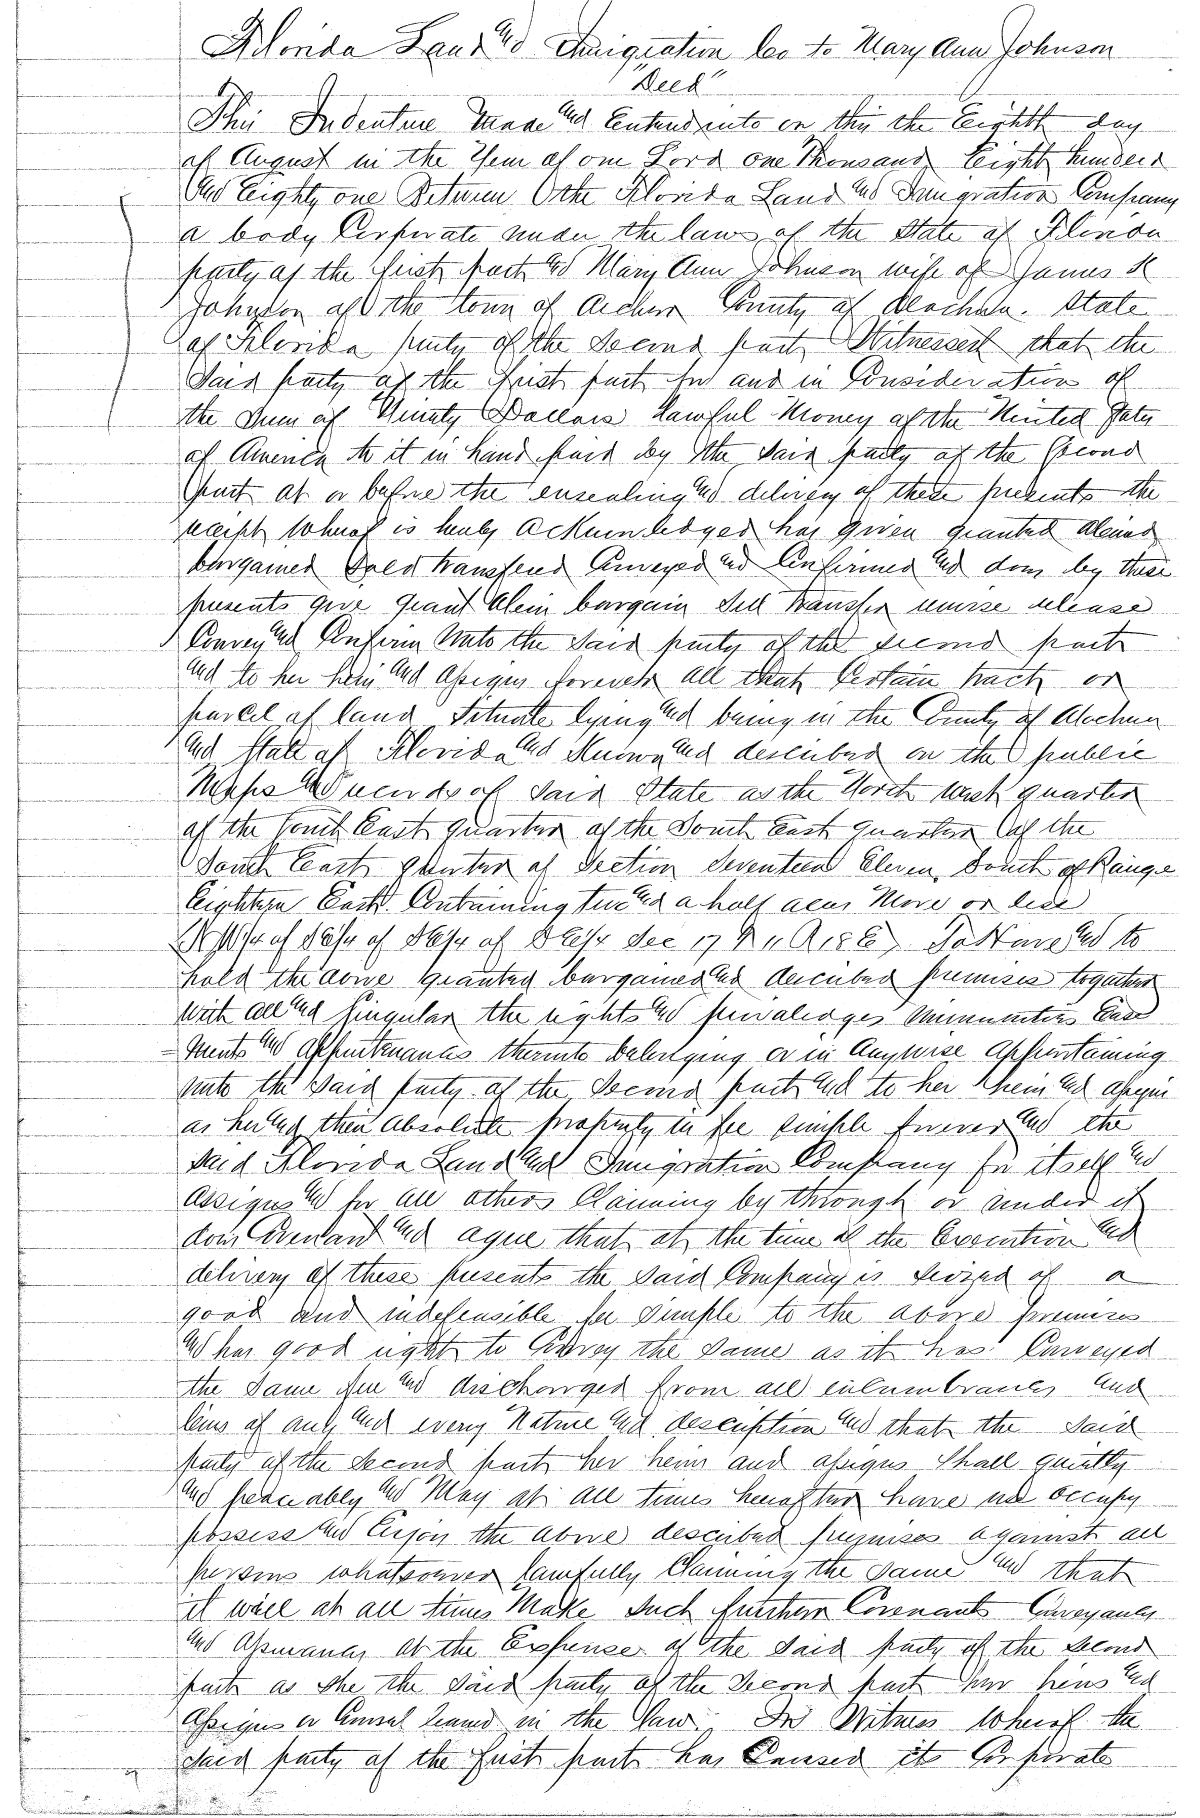 Florida Land and Imigration Co to Mary Ann Johnson
"Deed"
This Indenture Made and Entered into on this the Eighth day
of August in the Year of our Lord one Thousand Eight hundred
and Eighty one Between the Florida Land and Imigration Company
a body Corporate under the laws of the State of Florida
party of the first part and Mary Ann Johnson wife of James
Johnson of the town of Archer County of Alachua. State
of Florida party of the Second part Witnesseth that the
Said party of the first part for and in Consideration of
the Sum of Ninety Dollars lawful Money of the United States
of America to it in hand paid by the said party of the Second
part at or before the ensealing and delivery of these presents the
receipt whereof is hereby acknowledged has given granted aliened
bargained sold transfered Conveyed and Confirmed and does by these
presents give grant alein bargain Sell transfer remise release
Convey and Confirm Unto the Said party of the second part
and to her heirs and assigns forever all that Certain tract or
parcel of land Situate lying and being in the County of Alachua
and State of Florida and Known and described on the public
Mapps and records of Said State as the North west quarter
of the South East quarter of the South East quarter of the
South East quarter of Section Seventeen Eleven South of Range
Eighteen East. Containing two and a half acres More or less
(NW¼ of SE¼ of SE¼ of SE¼ Sec 17 T 11 R 18 E) To Have and to
hold the above granted bargained and described premises together
with all and Singular the rights and privaledges immunities Ease
=ments and appurtenances thereunto belonging or in Anywise appertaining
unto the Said party of the Second part and to her heirs and assigns
as her and their absolute property in fee simple forever and the
said Florida Land and Imigration Company for itself and
assigns and for all others Claiming by through or under it
does Covenant and agree that at the time of the Execution and
delivery of these presents the Said Company is seized of a
good and indefeasible fee simple to the above premises
and has good right to Convey the same as it has Conveyed
the same free and discharged from all encumbrances and
liens of any and every Nature and description and that the said
party of the Second part her heirs and assigns Shall quietly
and peaceably and May at all times hereafter have use occupy
possess and Enjoy the above described premises against all
persons whatsoever lawfully Claiming the same and that
it will at all times Make such further Covenants Conveyances
and Assurances at the Expense of the said party of the second
part as she the said party of the Second part her heirs and
assigns or Counsel learned in the law. In Witness whereof the
said party of the first part has Caused its Corporate